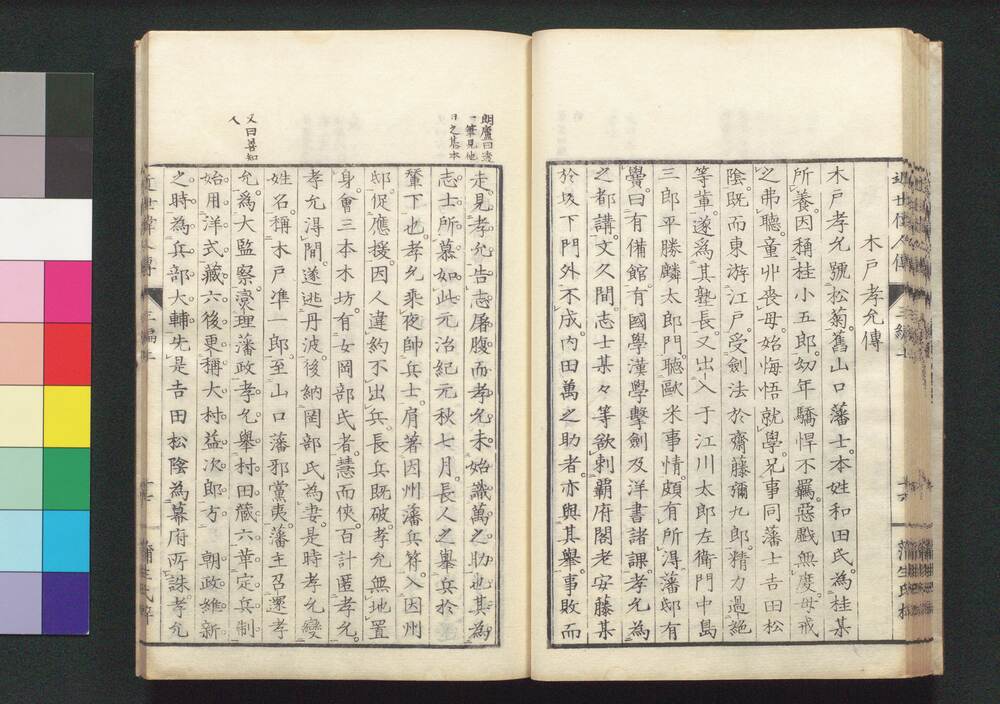 近世偉人傳
木戸孝允傳
木戸孝允號松菊舊山口藩士本姓和田氏為桂某
所養因稱桂小五郎幼年驕悍不羈惡戲無度母戒
之弗聽童丱喪母始悔悟就學兄事同藩士吉田松
陰既而東游江戸受劍法於齋藤彌九郎精力過絶
等輩遂爲其塾長又出入于江川太郎左衛門中島
三郎平勝麟太郎門聽歐米事情頗有所得藩邸有
黌曰有備館有國學漢學擊劍及洋書諸課孝允為
之都講文久間志士某々等欲刺覇府閣老安藤某
於坂下門外不成内田萬之助者亦與其舉事敗而
朗廬曰
一筆見他
日之基本
走見孝允告志屠腹而孝允未始識萬之助也其為
志士所慕如此元治紀元秋七月長人之舉兵於
輦下也孝允乘夜帥兵士肩著因州藩兵符入因州
邸促應援因人違約不出兵長兵既破孝允無地置
身會三本木坊有女岡部氏者慧而俠百計匿孝允
孝允得間遂逃丹波後納岡部氏為妻是時孝允變
姓名稱木戸準一郎至山口藩邪黨夷藩主召還孝
又曰善知
人
允爲大監察裏理藩政孝允舉村田藏六一革定兵制
始用洋式藏六後更稱大村益次郎方 朝政維新
之時為兵部大輔先是吉田松陰為幕府所誅孝允